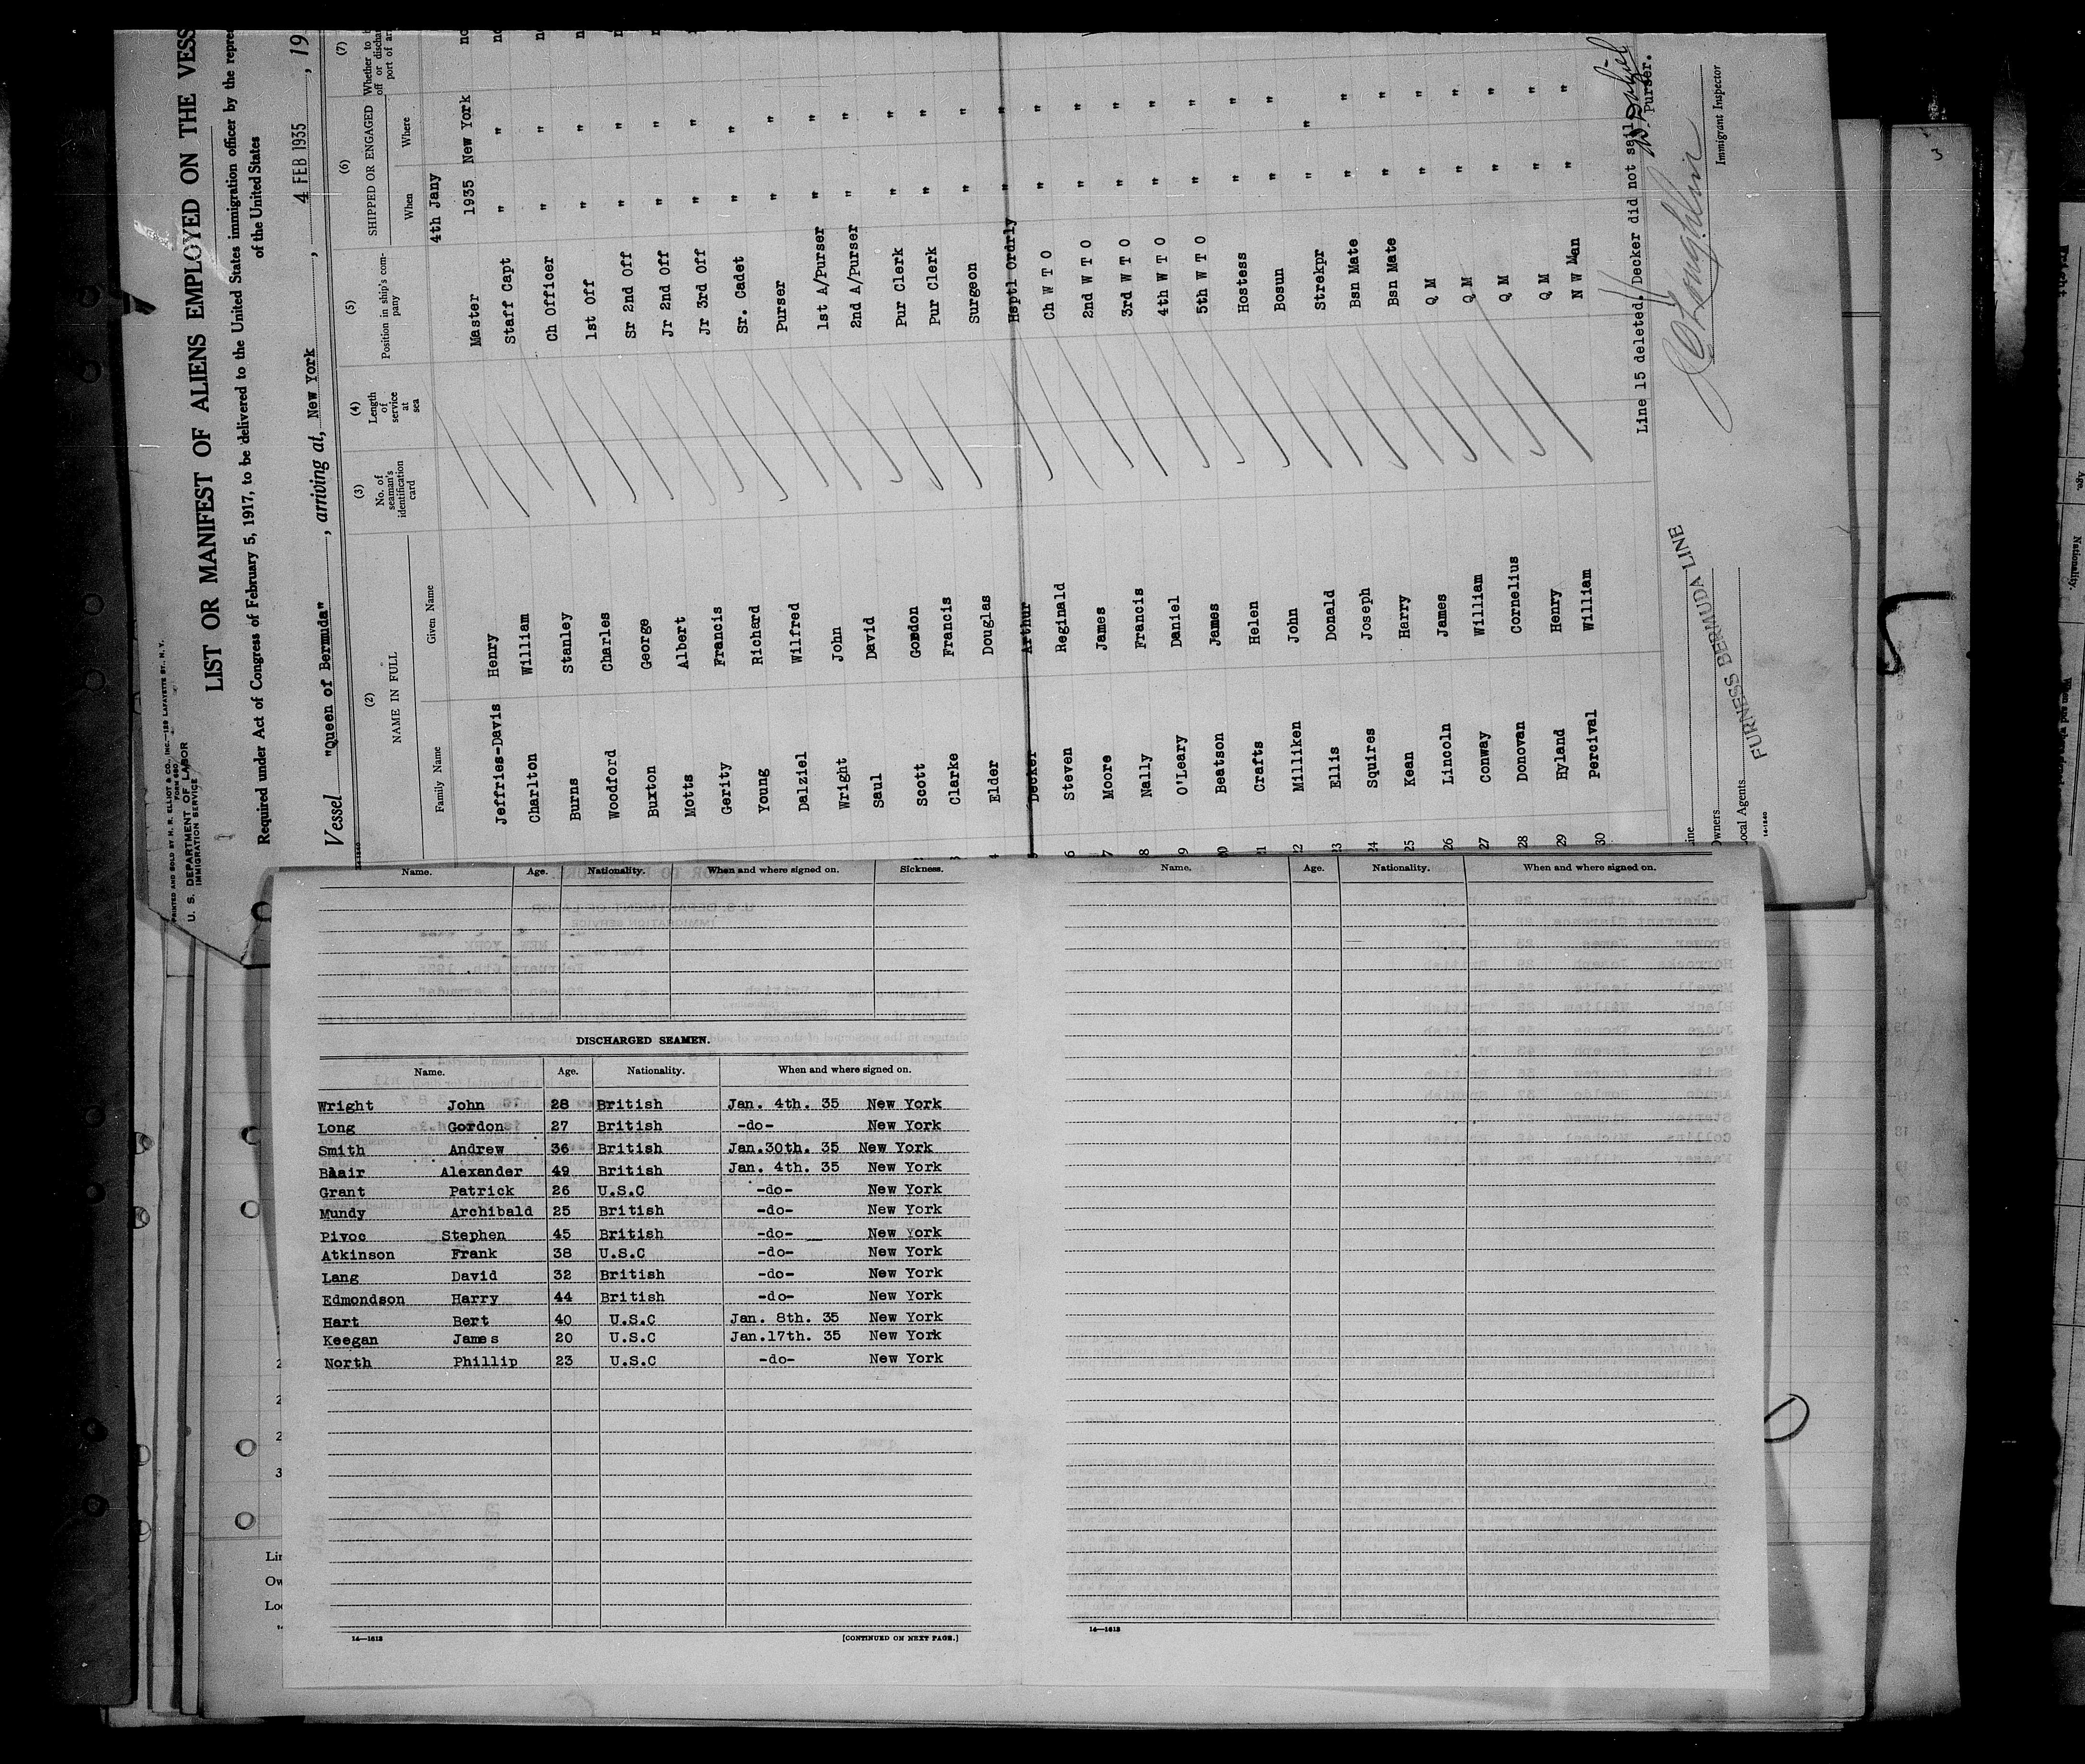 PRINTED AND SOLD BY H. R. ELLIOT & CO., INC.—129 LAFAYETTE ST., N. Y.
FORM 680
U. S. DEPARTMENT OF LABOR
IMMIGRATION SERVICE
LIST OR MANIFEST OF ALIENS EMPLOYED ON THE VESS
Required under Act of Congress of February 5, 1917, to be delivered to the United States immigration officer by the repre
of the United States
Vessel "Queen of Bermuda", arriving at, New York, 4 FEB 1935, 19
(2) (3) (4) (5) (6) (7)
NAME IN FULL No. of seaman's identification card Length of service at sea Position in ship's company SHIPPED OR ENGAGED Whether to b
off or dischar
port of ar
Family Name Given Name When Where
4th Jany
Jeffries-Davis Henry Master 1935 New York no
Charlton William Staff Capt " "
Burns Stanley Ch Officer " "
Woodford Charles 1st Off " "
Buxton George Sr 2nd Off " "
Motts Albert Jr 2nd Off " "
Gerity Francis Jr 3rd Off " "
Young Richard Sr. Cadet " "
Dalziel Wilfred Purser " "
Wright John 1st A/Purser " "
Saul David 2nd A/Purser " "
Scott Gordon Pur Clerk " "
Clarke Francis Pur Clerk " "
4 Elder Douglas Surgeon " "
5 Decker Arthur Hsptl Ordrly " "
6 Steven Reginald Ch W T O " "
7 Moore James 2nd W T O " "
8 Nally Francis 3rd W T O " "
9 O'Leary Daniel 4th W T O " "
20 Beatson James 5th W T O " "
21 Crafts Helen Hostess " "
22 Milliken John Bosun " "
23 Ellis Donald Strekpr " "
24 Squires Joseph Bsn Mate " "
25 Kean Harry Bsn Mate " "
26 Lincoln James Q M " "
27 Conway William Q M " "
28 Donovan Cornelius Q M " "
29 Hyland Henry Q M " "
30 Percival William N W Man " "
Line 15 deleted. Decker did not sail
Purser.
Immigrant Inspector
ine
Owners
ocal Agents
FURNESS BERMUDA LINE
14-1240
Name. Age. Nationality. When and where signed on. Sickness.
DISCHARGED SEAMEN.
Name. Age. Nationality. When and where signed on.
Wright John 28 British Jan. 4th. 35 New York
Long Gordon 27 British -do- New York
Smith Andrew 36 British Jan.30th. 35 New York
Blair Alexander 49 British Jan. 4th. 35 New York
Grant Patrick 26 U.S.C -do- New York
Mundy Archibald 25 British -do- New York
Pivoc Stephen 45 British -do- New York
Atkinson Frank 38 U.S.C -do- New York
Lang David 32 British -do- New York
Edmondson Harry 44 British -do- New York
Hart Bert 40 U.S.C Jan. 8th. 35 New York
Keegan James 20 U.S.C Jan.17th. 35 New York
North Phillip 23 U.S.C -do- New York
14—1613
[CONTINUED ON NEXT PAGE.]
Name. Age. Nationality. When and where signed on.
14—1613
Lin
Ow
Loc